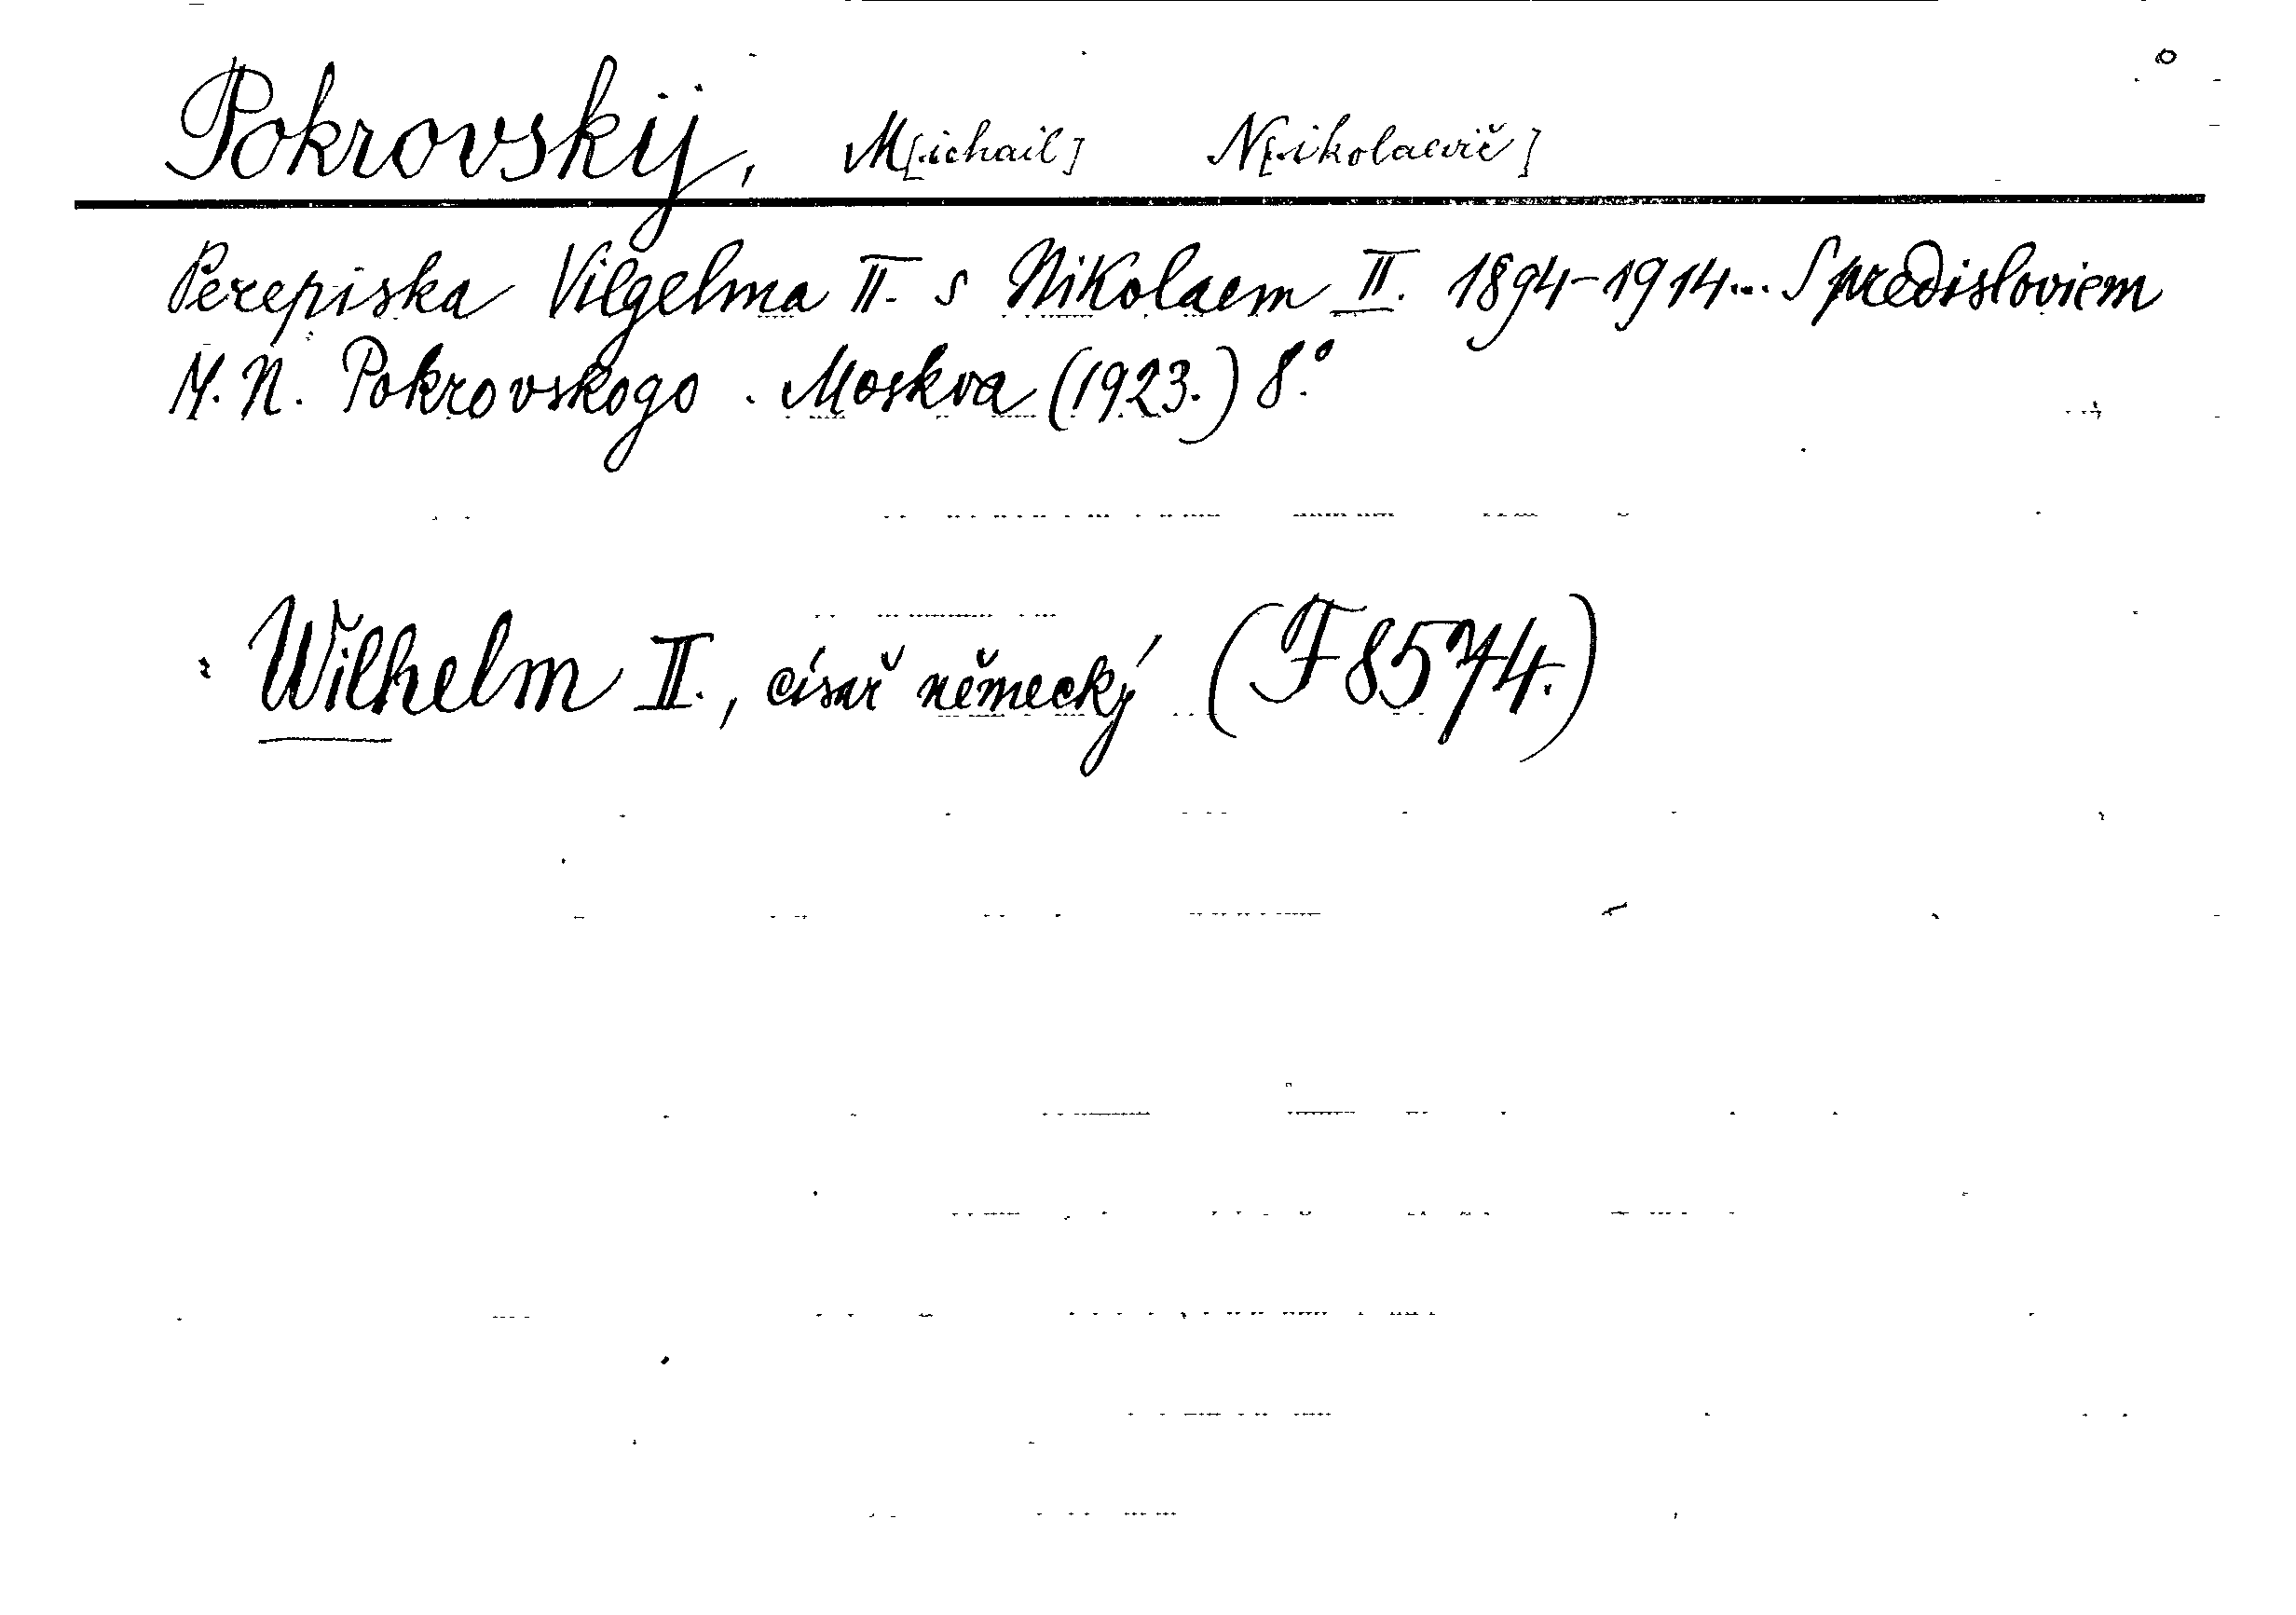 Pokrovskij, M[ichail] N[ikolaevič]
Perepiska Vilgelma II. s Nikolaem II. 1894-1914... S predisloviem
M. N. Pokrovskogo. Moskva (1923.) 8.°
Wilhelm II., císař německý (F 8574.)